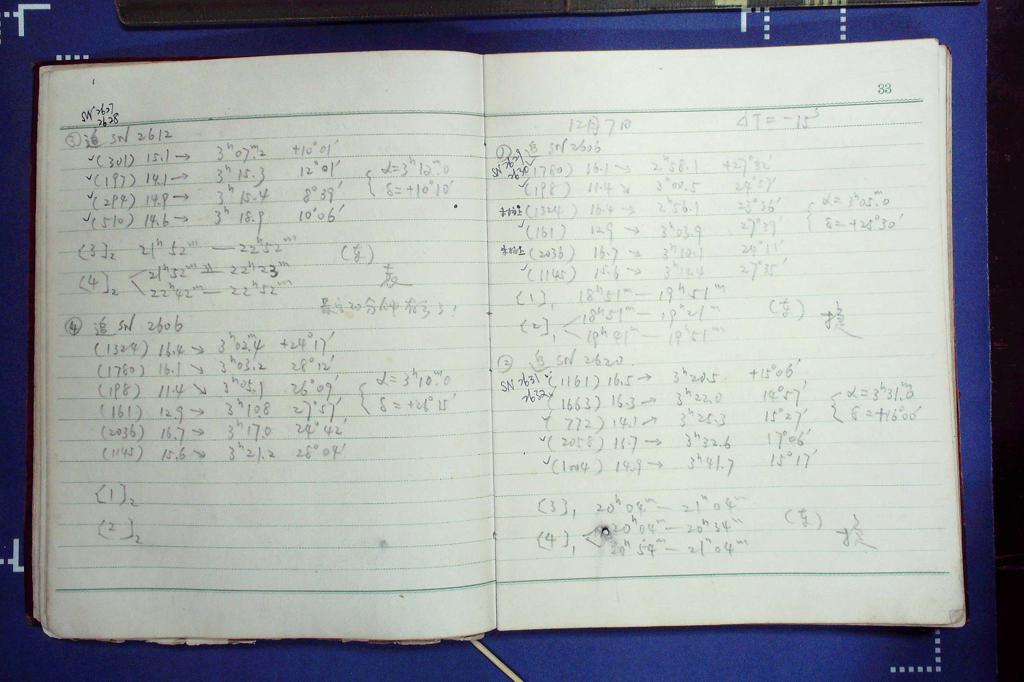 SN 2627
2628
③ 追 SN 2612
√(301) 15.1→ 3ʰ07ᵐ.2 +10°01′
√(197) 14.1→ 3ʰ15.3 12°01′
√(294) 14.9→ 3ʰ15.4 8°39′
√(510) 14.6→ 3ʰ18.9 10°06′
{ α=3ʰ12ᵐ.0
δ=+10°10′
(3)₂ 21ʰ52ᵐ—22ʰ52ᵐ
(4)₂ 21ʰ52ᵐ—22ʰ23ᵐ
22ʰ42ᵐ—22ʰ52ᵐ
④ 追 SN 2606
(1324) 16.4↘ 3ʰ02.4 +24°17′
(1780) 16.1↘ 3ʰ03.2 28°12′
(198) 11.4↘ 3ʰ05.1 26°09′
(161) 12.9→ 3ʰ10.8 27°57′
(2036) 16.7→ 3ʰ17.0 24°42′
(1145) 15.6↘ 3ʰ21.2 28°04′
{ α=3ʰ10ᵐ.0
δ=+26°15′
(1)₂
(2)₂
33
12月7日 ΔT=-15ˢ
① 追 SN 2606
SN 2629
2630
√(1780) 16.1→ 2ʰ58.1
√(198) 11.4↘ 3ʰ00.5
(1324) 16.4→ 2ʰ56.1 23°36′
√(161) 12.9→ 3ʰ03.9 27°39′
(2036) 16.7→ 3ʰ10.1 24°11′
√(1145) 15.6↘ 3ʰ14.4 27°35′
{ α=3ʰ05.0ᵐ
δ=+25°30′
(1)₁ 18ʰ51ᵐ—19ʰ51ᵐ
(2)₁ 18ʰ51ᵐ—19ʰ21ᵐ
19ʰ41ᵐ—19ʰ51ᵐ
② 追 SN 2620
SN 2631
2632
√(1161) 16.5→ 3ʰ20.5 +15°06′
(1663) 16.3→ 3ʰ22.0 14°57′
(772) 14.1→ 3ʰ25.3 15°27′
√(2058) 15.7→ 3ʰ32.6 17°06′
√(1004) 14.9→ 3ʰ41.7 15°17′
{ α=3ʰ31.0ᵐ
δ=+16°00′
(3)₁ 20ʰ04ᵐ—21ʰ04ᵐ
(4)₁ 20ʰ04ᵐ—20ʰ34ᵐ
20ʰ54ᵐ—21ʰ04ᵐ